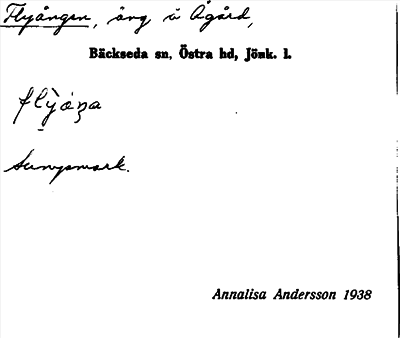 Flyängen, äng å Ågård,
Bäckseda sn, Östra hd, Jönk. l.
Sumpmark.
Annalisa Andersson 1938